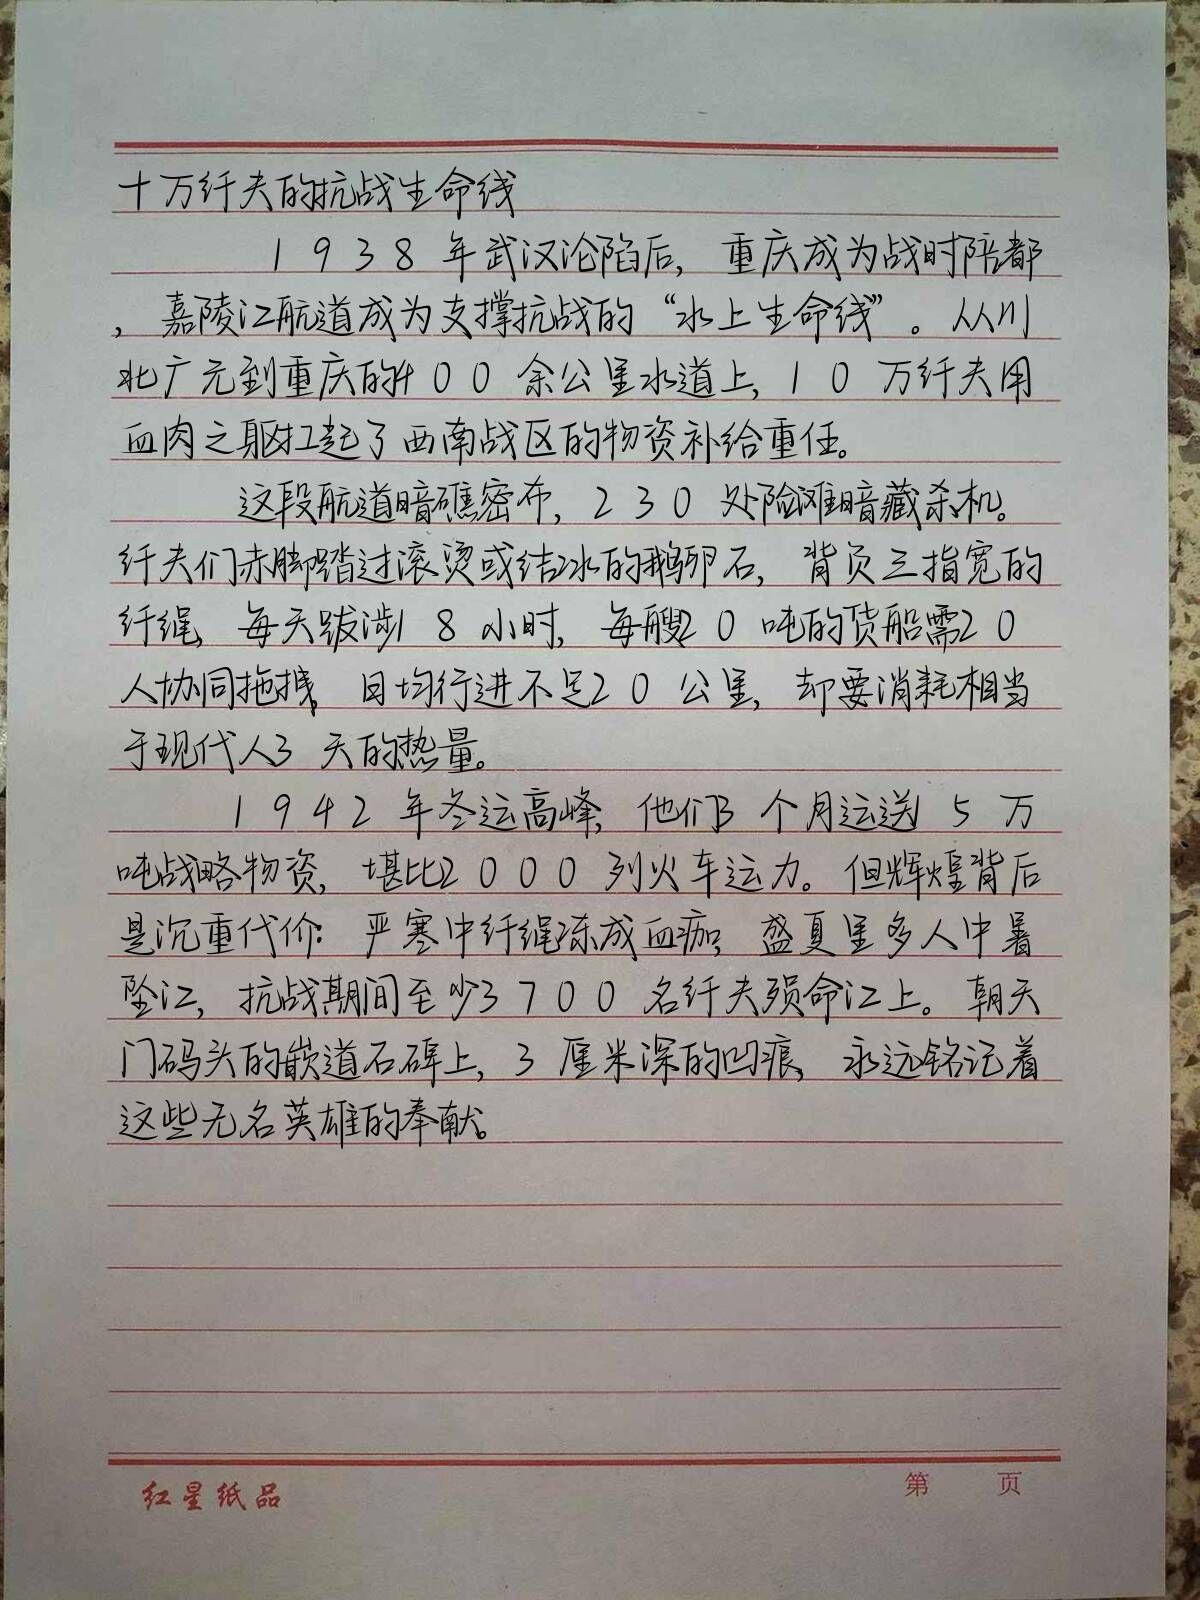 十万纤夫的抗战生命线
1938年武汉沦陷后，重庆成为战时陪都
，嘉陵江航道成为支撑抗战的“水上生命线”。从川
北广元到重庆的400余公里水道上，10万纤夫用
血肉之躯扛起了西南战区的物资补给重任。
这段航道暗礁密布，230处险滩暗藏杀机。
纤夫们赤脚踏过滚烫或结冰的鹅卵石，背负三指宽的
纤绳，每天跋涉18小时，每艘20吨的货船需20
人协同拖拽，日均行进不足20公里，却要消耗相当
于现代人3天的热量。
1942年冬运高峰，他们3个月运送15万
吨战略物资，堪比2000列火车运力。但辉煌背后
是沉重代价：严寒中纤绳冻成血痂，盛夏里多人中暑
坠江，抗战期间至少3700名纤夫殒命江上。朝天
门码头的嵌道石碑上，3厘米深的凹痕，永远铭记着
这些无名英雄的奉献。
红星纸品
第 页